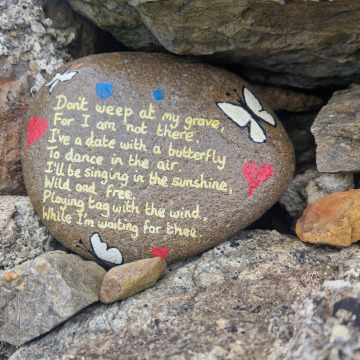 Don't weep at my grave,
For I am not there,
I've a date with a butterfly
To dance in the air.
I'll be singing in the sunshine,
Wild and free,
Playing tag with the wind,
While I'm waiting for thee.